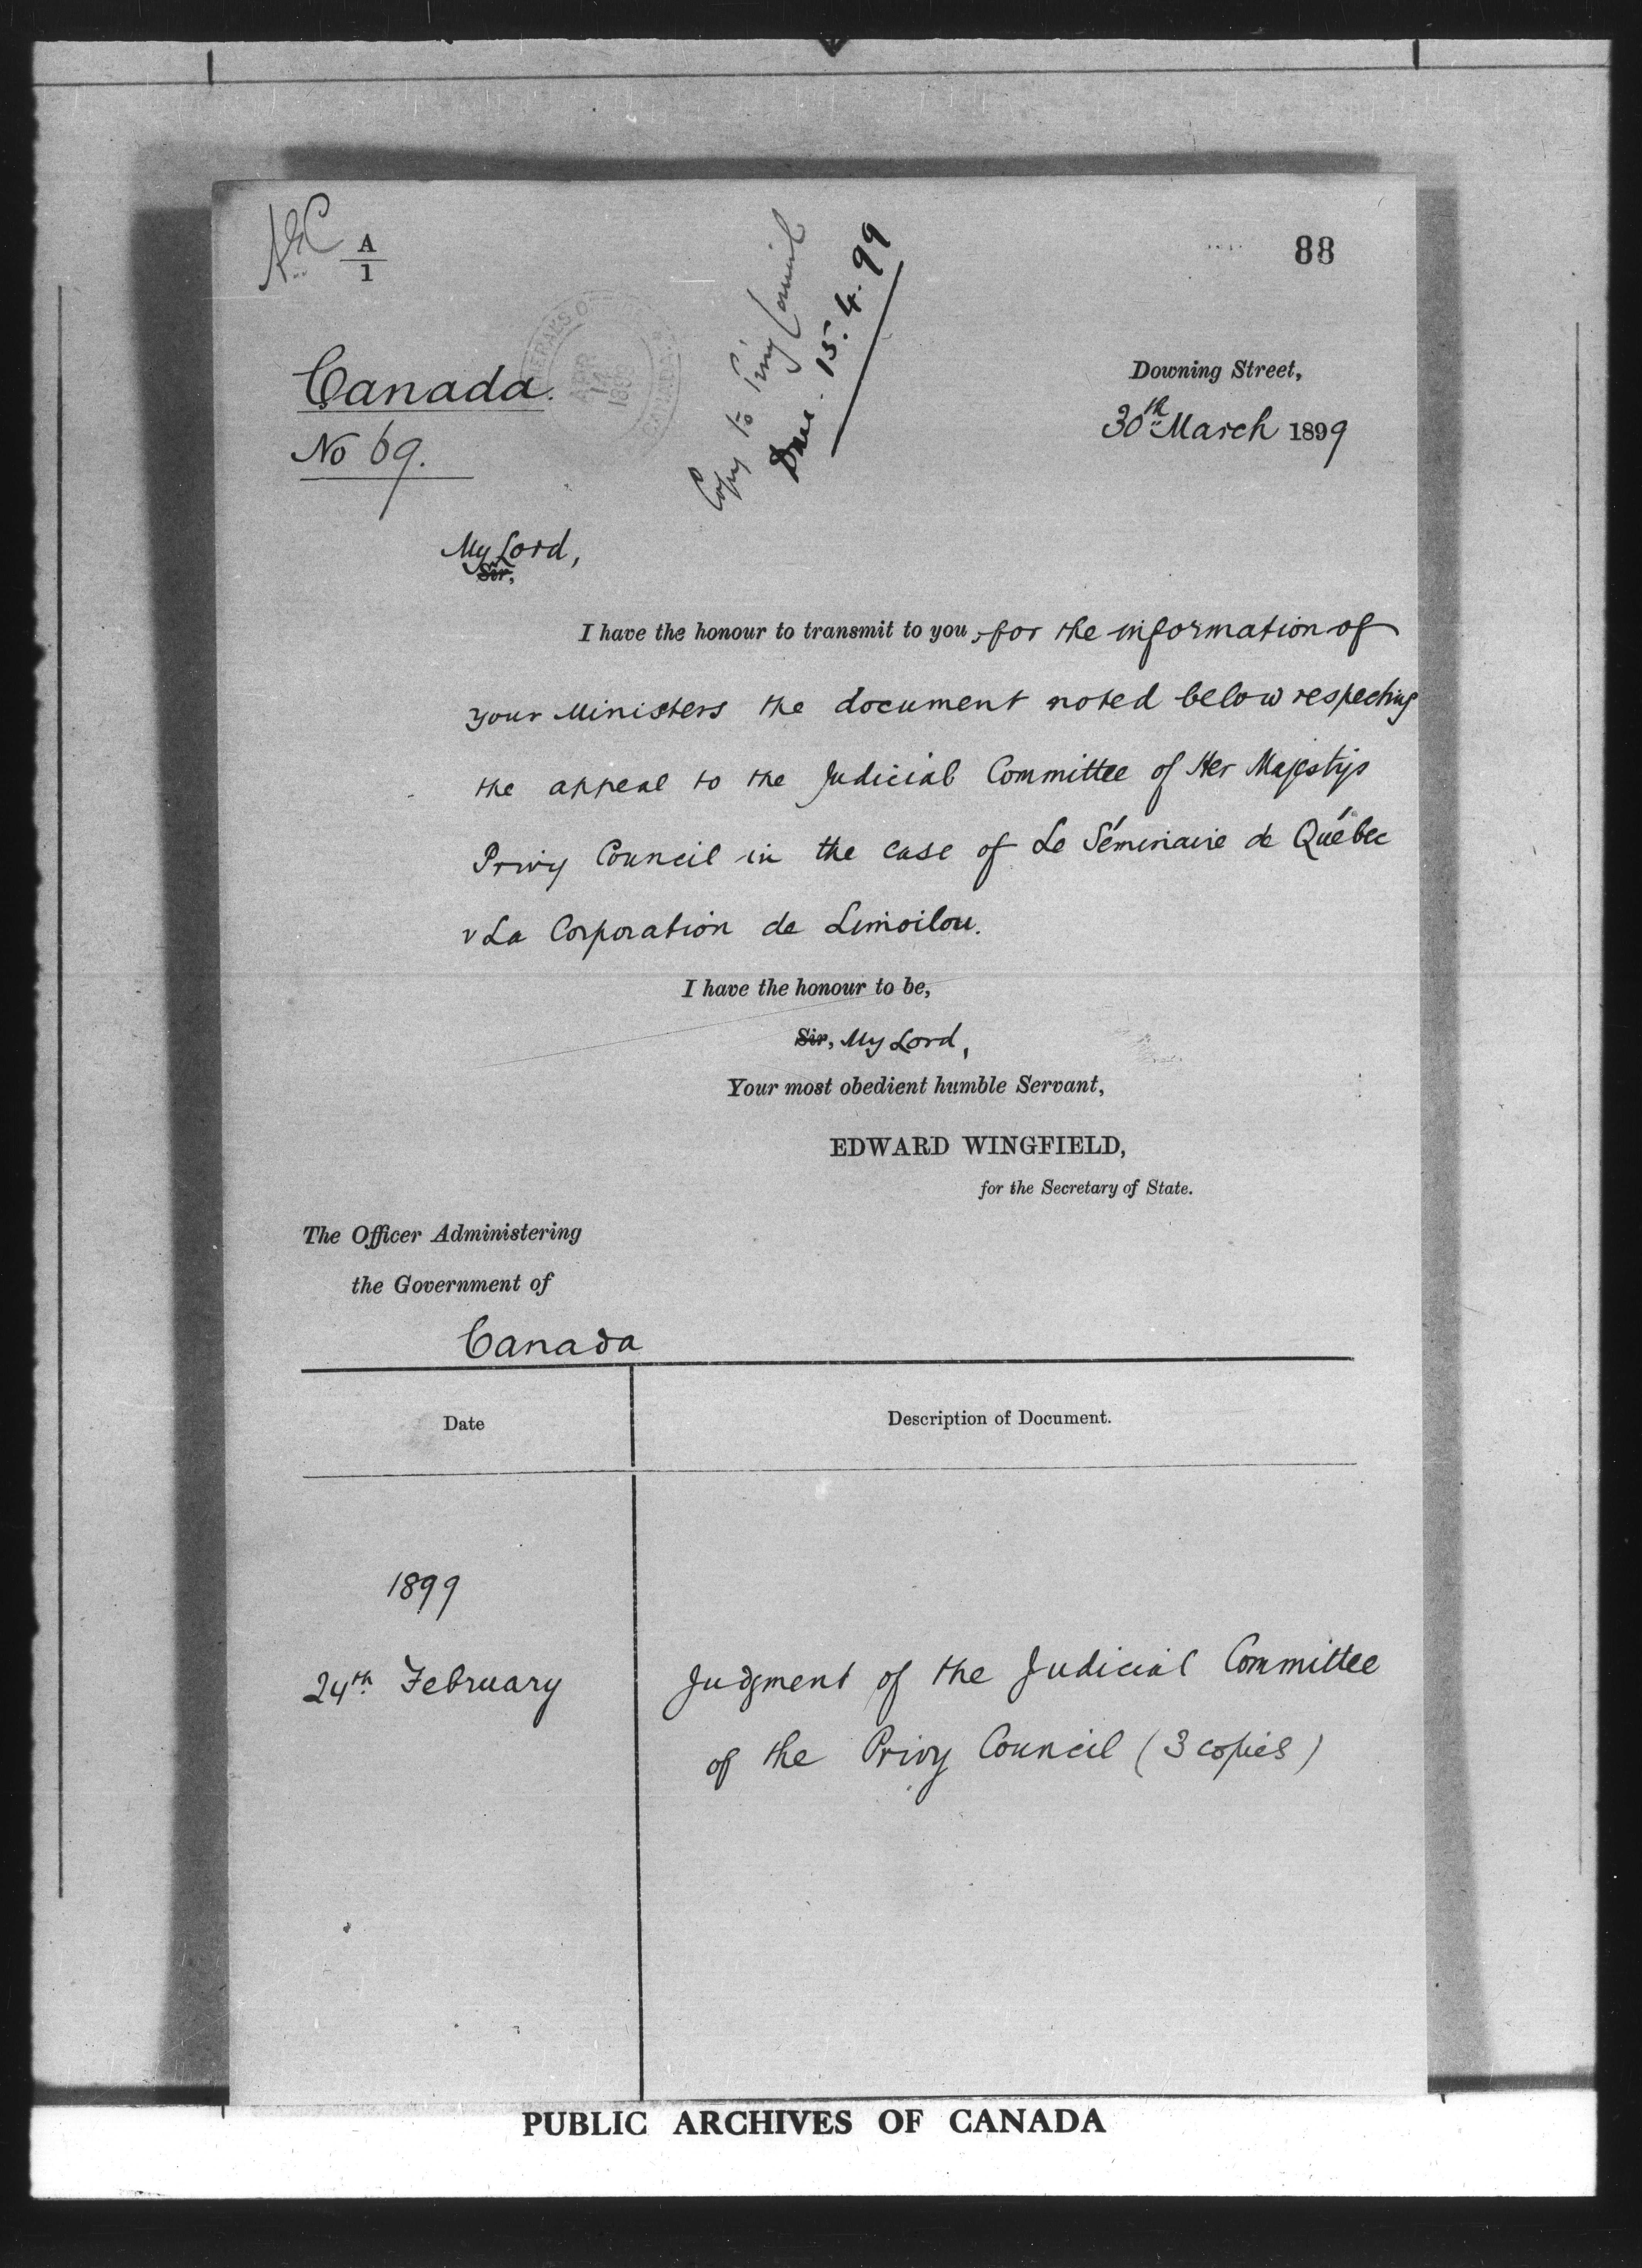 A
1
88
Copy to Privy Council
15.4.99
Canada.
No 69.
Downing Street,
30th March 1899
My Lord,
Sir,
I have the honour to transmit to you, for the information of
your Ministers the document noted below respecting
the appeal to the Judicial Committee of Her Majestys
Privy Council in the case of Le Séminaire de Québec
v La Corporation de Limoilou.
I have the honour to be,
Sir, My Lord,
Your most obedient humble Servant,
EDWARD WINGFIELD,
for the Secretary of State.
The Officer Administering
the Government of
Canada
Date
Description of Document.
1899
24th February
Judgment of the Judicial Committee
of the Privy Council (3 copies)
PUBLIC ARCHIVES OF CANADA